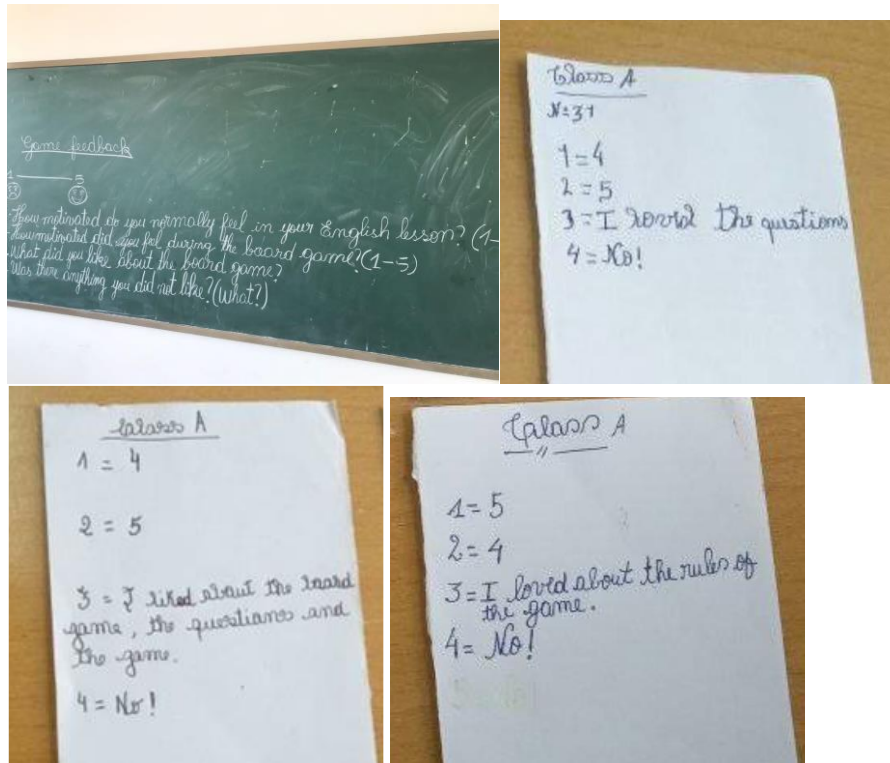 Game feedback
1 5
How motivated do you normally feel in your English lesson? (1-
How motivated did you feel during the board game? (1-5)
What did you like about the board game?
Was there anything you did not like? (What?)
Class A
N=31
1=4
2=5
3=I loved the questions
4=No!
Class A
1 = 4
2 = 5
3 = I liked about the board
game, the questions and
the game.
4 = No!
Class A
1=5
2=4
3=I loved about the rules of
the game.
4= No!